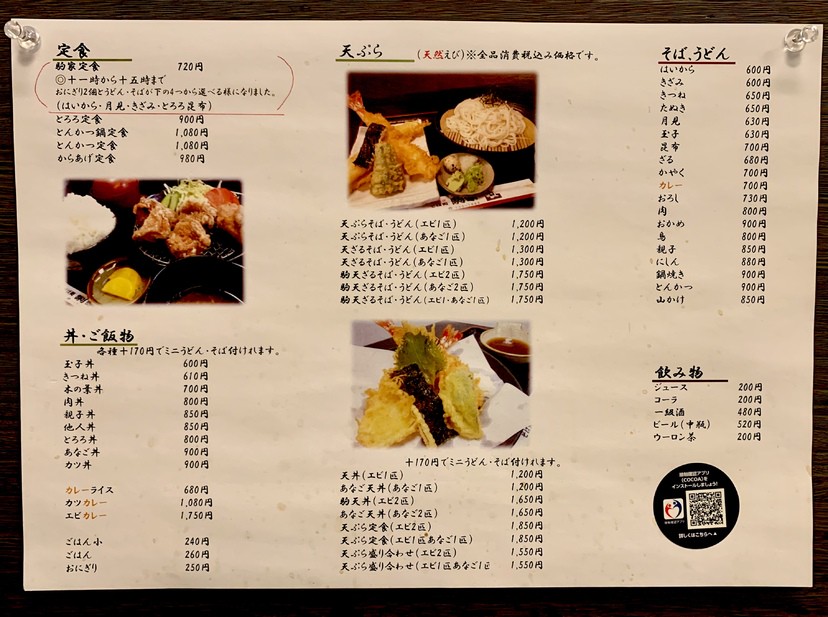 定食
駒家定食 720円
◎十一時から十五時まで
おにぎり2個とうどん・そばが下の4つから選べる様になりました。
(はいから・月見・きざみ・とろろ昆布)
とろろ定食 900円
とんかつ鍋定食 1,080円
とんかつ定食 1,080円
からあげ定食 980円
丼・ご飯物
各種+170円でミニうどん・そば付けれます。
玉子丼 600円
きつね丼 610円
木の葉丼 700円
肉丼 800円
親子丼 850円
他人丼 850円
とろろ丼 800円
あなご丼 900円
カツ丼 900円
カレーライス 680円
カツカレー 1,080円
エビカレー 1,750円
ごはん小 240円
ごはん 260円
おにぎり 250円
天ぷら (天然えび)※全品消費税込み価格です。
天ぷらそば・うどん(エビ1匹) 1,200円
天ぷらそば・うどん(あなご1匹) 1,200円
天ざるそば・うどん(エビ1匹) 1,300円
天ざるそば・うどん(あなご1匹) 1,300円
駒天ざるそば・うどん(エビ2匹) 1,750円
駒天ざるそば・うどん(あなご2匹) 1,750円
駒天ざるそば・うどん(エビ1・あなご1匹) 1,750円
+170円でミニうどん・そば付けれます。
天丼(エビ1匹) 1,200円
あなご天丼(あなご1匹) 1,200円
駒天丼(エビ2匹) 1,650円
あなご天丼(あなご2匹) 1,650円
天ぷら定食(エビ2匹) 1,850円
天ぷら定食(エビ1匹あなご1匹) 1,850円
天ぷら盛り合わせ(エビ2匹) 1,550円
天ぷら盛り合わせ(エビ1匹あなご1匹 1,550円
そば、うどん
はいから 600円
きざみ 600円
きつね 650円
たぬき 650円
月見 630円
玉子 630円
昆布 700円
ざる 680円
かやく 700円
カレー 700円
おろし 730円
肉 800円
おかめ 900円
鳥 800円
親子 850円
にしん 880円
鍋焼き 900円
とんかつ 900円
山かけ 850円
飲み物
ジュース 200円
コーラ 200円
一級酒 480円
ビール(中瓶) 520円
ウーロン茶 200円
接触確認アプリ
(COCOA)を
インストールしましょう!
詳しくはこちらへ▲